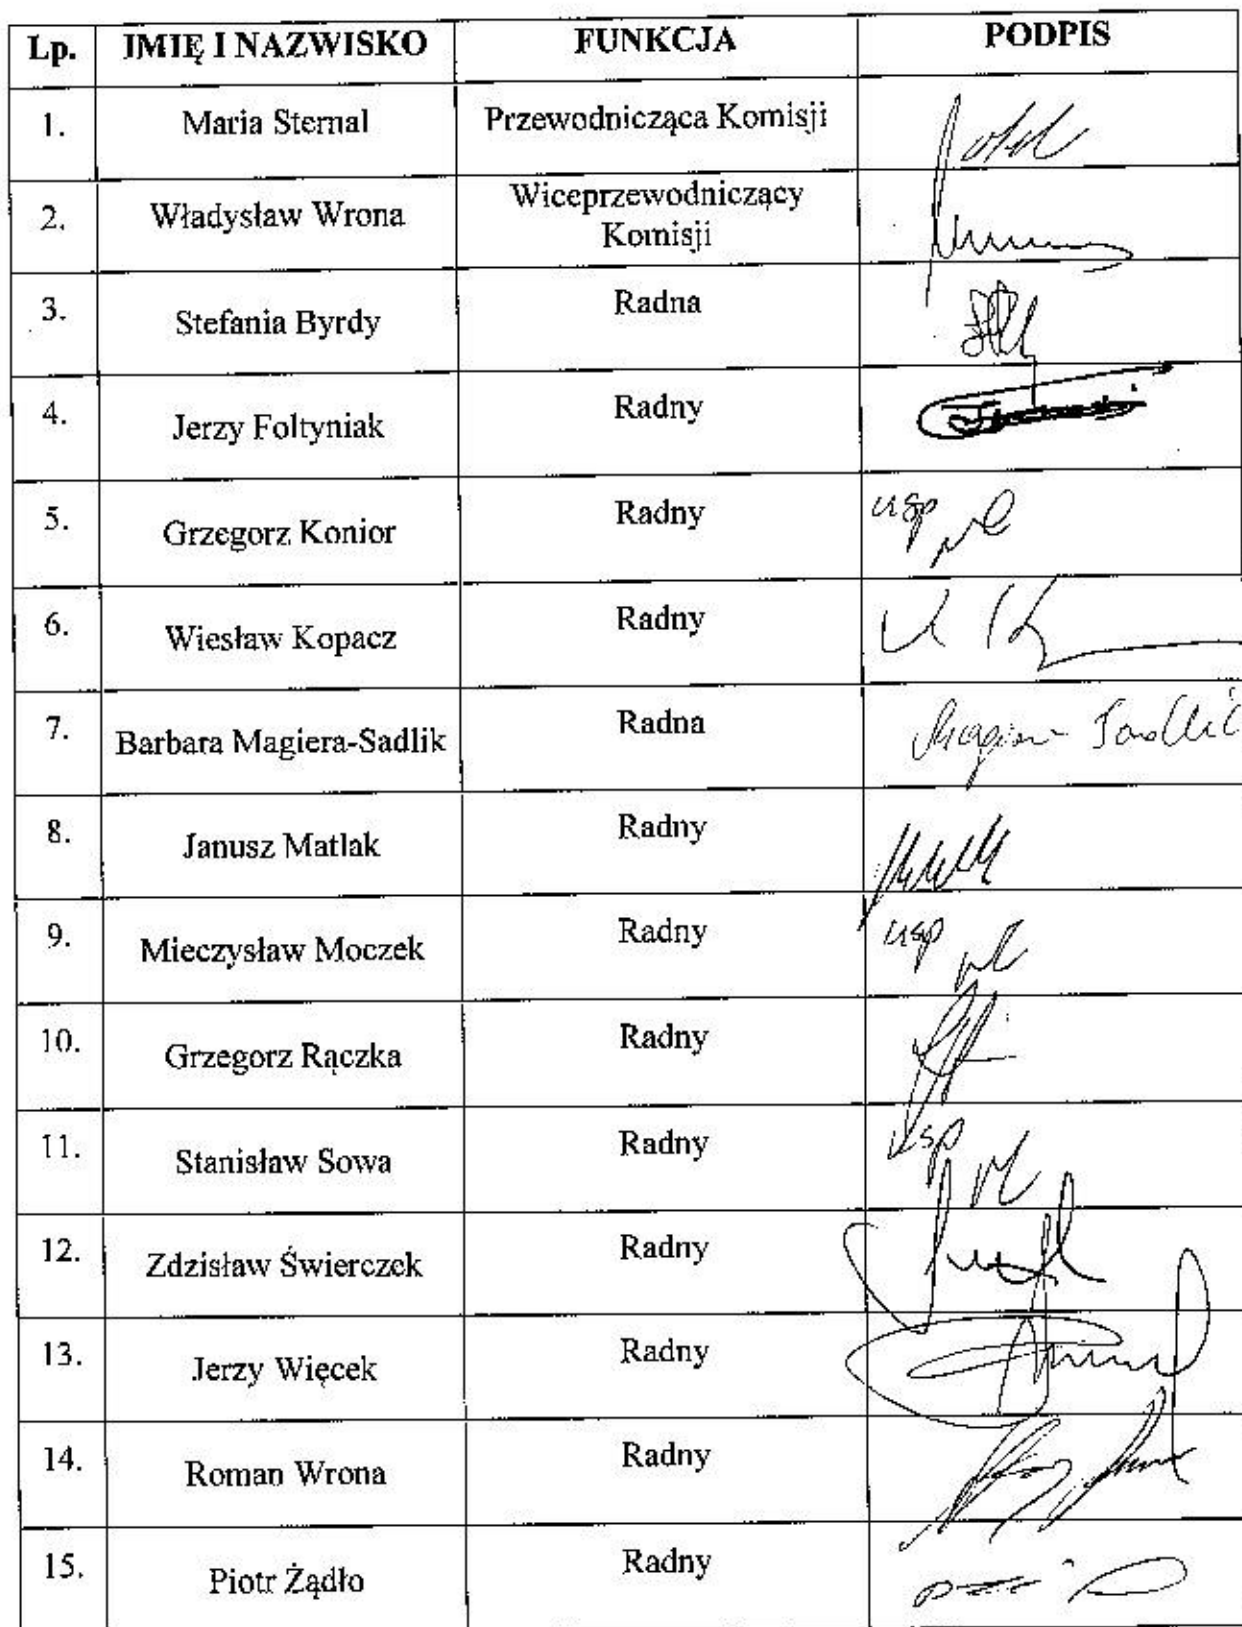 Lp. IMIĘ I NAZWISKO FUNKCJA PODPIS
1. Maria Sternal Przewodnicząca Komisji
2. Władysław Wrona Wiceprzewodniczący
Komisji
3. Stefania Byrdy Radna
4. Jerzy Foltyniak Radny
5. Grzegorz Konior Radny usp
6. Wiesław Kopacz Radny
7. Barbara Magiera-Sadlik Radna
8. Janusz Matlak Radny
9. Mieczysław Moczek Radny usp
10. Grzegorz Rączka Radny
11. Stanisław Sowa Radny usp
12. Zdzisław Świerczek Radny
13. Jerzy Więcek Radny
14. Roman Wrona Radny
15. Piotr Żądło Radny